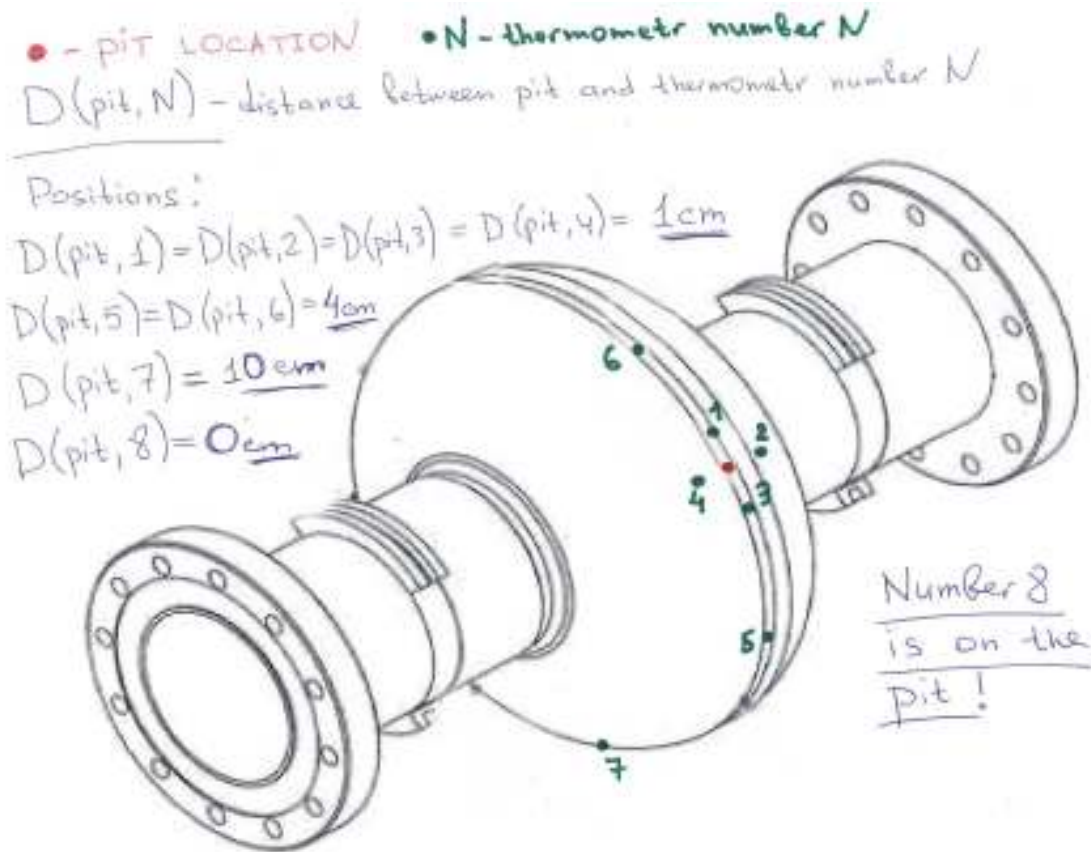 ● - PIT LOCATION ● N - thermometr number N
D(pit, N) - distance between pit and thermometr number N
Positions:
D(pit, 1) = D(pit, 2) = D(pit, 3) = D(pit, 4) = 1cm
D(pit, 5) = D(pit, 6) = 4cm
D(pit, 7) = 10cm
D(pit, 8) = 0cm
6
1
2
4
3
5
7
Number 8
is on the
pit!